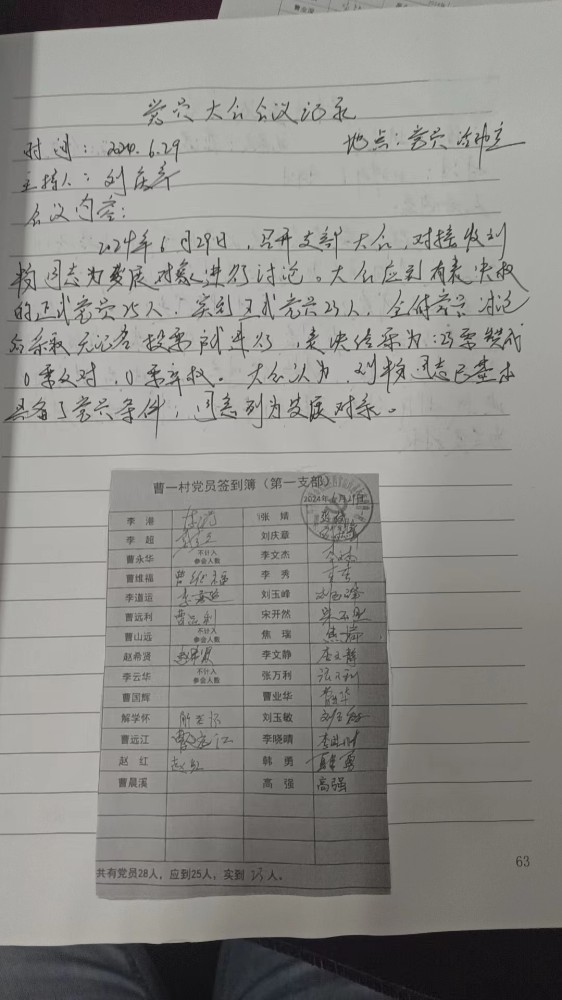 党员大会会议记录
时间：2024.6.29 地点：党员活动室
主持人：刘庆章
会议内容：
2024年6月29日，召开支部大会，对接收刘
同志为发展对象进行讨论。大会应到有表决权
的正式党员25人，实到正式党员23人，全体党员讨论
后采取无记名投票方式进行，表决结果为：23票赞成
0票反对，0票弃权。大会认为，刘 同志已基本
具备了党员条件；同志列为发展对象。
曹一村党员签到簿（第一支部）
2024年6月29日
李港 张婧
李超 刘庆章
曹永华 不计入参会人数 李文杰
曹维福 曹维福 李秀
李道运 刘玉峰
曹远利 曹远利 宋开然
曹山远 不计入参会人数 焦瑞 焦瑞
赵希贤 赵希贤 李文静 李文静
李云华 不计入参会人数 张万利 张万利
曹国辉 曹业华
解学怀 解学怀 刘玉敏 刘玉敏
曹远江 曹远江 李晓晴
赵红 赵红 韩勇
曹晨溪 高强 高强
共有党员28人，应到25人，实到23人。
63